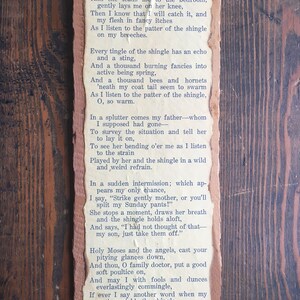 gently lays me on her knee,
Then I know that I will catch it, and
my flesh in fancy itches
As I listen to the patter of the shingle
on my breeches.
Every tingle of the shingle has an echo
and a sting,
And a thousand burning fancies into
active being spring,
And a thousand bees and hornets
'neath my coat tail seem to swarm
As I listen to the patter of the shingle,
O, so warm.
In a splutter comes my father—whom
I supposed had gone—
To survey the situation and tell her
to lay it on,
To see her bending o'er me as I listen
to the strain
Played by her and the shingle in a wild
and weird refrain.
In a sudden intermission; which ap-
pears my only chance,
I say, "Strike gently mother, or you'll
split my Sunday pants!"
She stops a moment, draws her breath
and the shingle holds aloft,
And says, "I had not thought of that—
my son, just take them off."
Holy Moses and the angels, cast your
pitying glances down,
And thou, O family doctor, put a good
soft poultice on,
And may I with fools and dunces
everlastingly commingle,
If ever I say another word when my